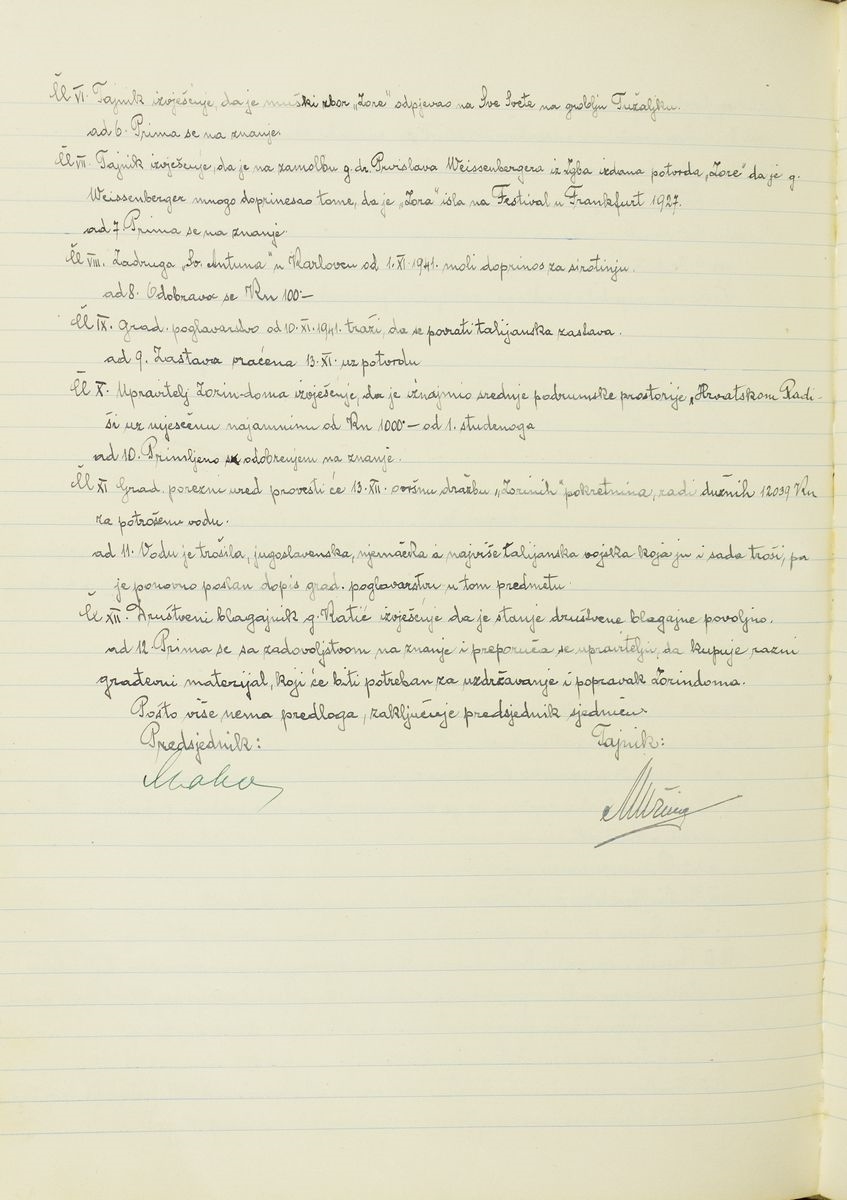 Čl VI. Tajnik izvješćuje, da je muški zbor „Zore" odpjevao na Sve Svete na groblju Tužaljku.
ad 6. Prima se na znanje.
Čl VII. Tajnik izvješćuje, da je na zamolbu g. dr. Prvislava Weissenbergera iz Zgba izdana potvrda „Zore" da je g.
Weissenberger mnogo doprinesao tome, da je „Zora" išla na Festival u Frankfurt 1927.
ad 7. Prima se na znanje.
Čl VIII. Zadruga „Sv. Antuna" u Karlovcu od 1. XI. 1941. moli doprinos za sirotinju.
ad 8. Odobrava se Kn 100.—
Čl IX. Grad. poglavarstvo od 10. XI. 1941. traži, da se povrati talijanska zastava.
ad 9. Zastava vraćena 13. XI. uz potvrdu
Čl X. Upravitelj Zorin-doma izvješćuje, da je iznajmio srednje podrumske prostorije „Hrvatskom Radi-
ši uz mjesečnu najamninu od Kn 1000.— od 1. studenoga
ad 10. Primljeno s odobrenjem na znanje.
Čl XI Grad. porezni ured provesti će 13. XII. ovršnu dražbu „Zorinih" pokretnina, radi dužnih 12039 Kn
za potrošenu vodu.
ad 11. Vodu je trošila, jugoslavenska, njemačka a najviše talijanska vojska koja ju i sada troši, pa
je ponovno poslan dopis grad. poglavarstvu u tom predmetu.
Čl XII. Društveni blagajnik g. Katić izvješćuje da je stanje društvene blagajne povoljno.
ad 12. Prima se sa zadovoljstvom na znanje i preporuča se upravitelju, da kupuje razni
građevni materijal, koji će biti potreban za uzdržavanje i popravak Zorindoma.
Pošto više nema predloga, zaključuje predsjednik sjednicu.
Predsjednik:
Tajnik: